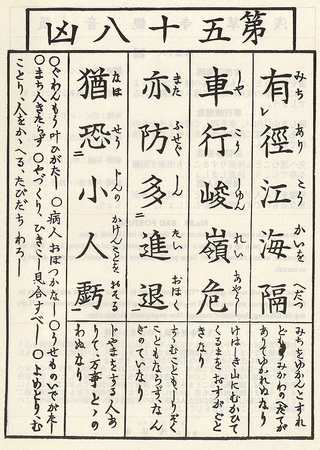 第五十八凶
有徑江海隔
みち あり こう かいを へだつ
みちをゆかんとすれ
ども、うみかわのへだてが
ありてゆかれぬなり
車行峻嶺危
しや こう しゆん れい あやうし
けはしき山にむかひて
くるまをおすがごと
きなり
亦防多進退
また ふせぐ しん たい おほく
すゝむこともしりぞく
こともならず、なん
ぎのていなり
猶恐小人虧
なほ せう じんの かけんことを おそる
じやまをする人あ
りて、万事とゝの
わぬなり
○ぐわんもう叶ひがたし ○病人おぼつかなし ○うせものいでがたし
○まち人きたらず ○やづくり、ひきこし見合すべし ○よめとり、む
ことり、人をかゝへる、たびだちわろし